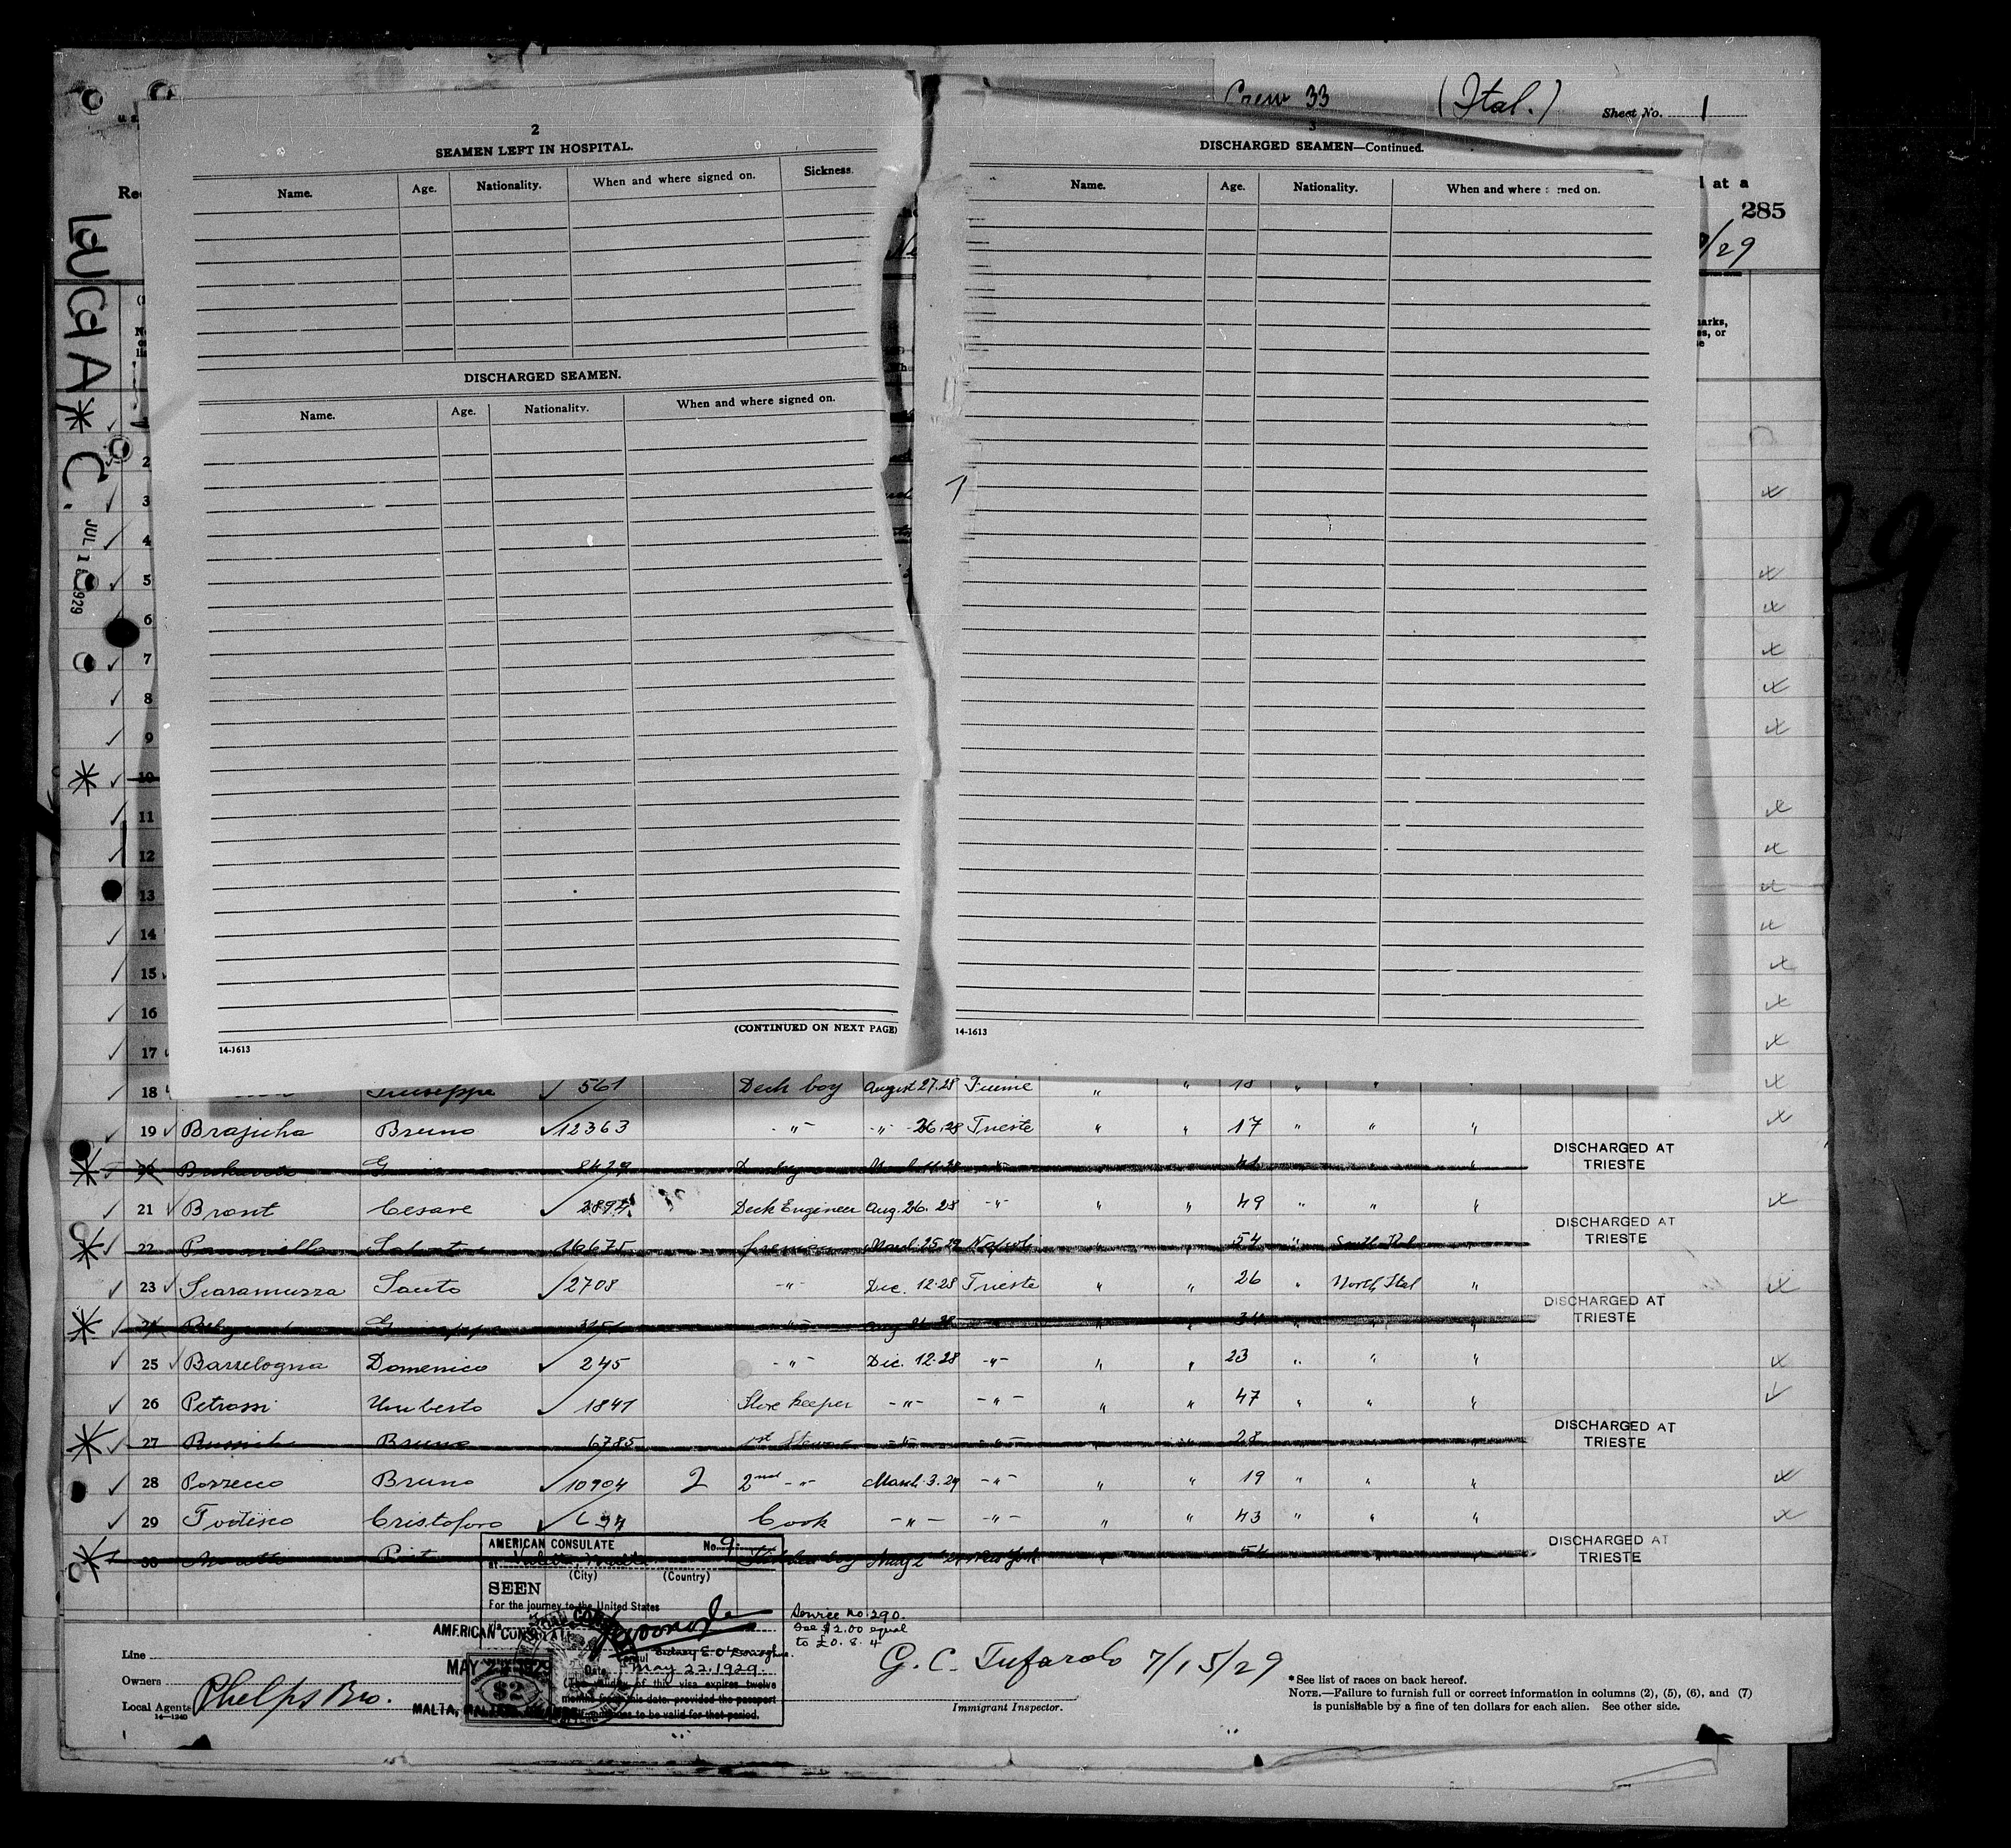 Crew 33 (Ital.) Sheet No. 1
2
SEAMEN LEFT IN HOSPITAL.
Name. Age. Nationality. When and where signed on. Sickness.
DISCHARGED SEAMEN.
Name. Age. Nationality. When and where signed on.
(CONTINUED ON NEXT PAGE)
14-1613
3
DISCHARGED SEAMEN—Continued.
Name. Age. Nationality. When and where
14-1613
at a
285
/29
LUCIA C.
JUL 1 1929
2
3
4
5
6
7
8
9
10
11
12
13
14
15
16
17
18 Giuseppe 561 Deck boy August 27.28 Fiume " " 18 " "
19 Brajicha Bruno 12363 -"- -"- 26.28 Trieste " " 17 " " "
8429 DISCHARGED AT TRIESTE
21 Bront Cesare Deck Engineer Aug. 26. 28 -"- " " 49 " " "
22 16675 fireman March 25.29 Napoli " " 54 " South Ital " DISCHARGED AT TRIESTE
23 Scaramuzza Santo 2708 -"- Dec. 12.28 Trieste " " 26 " North Ital "
DISCHARGED AT TRIESTE
25 Barzelogna Domenico 245 -"- Dec. 12.28 -"- " " 23 " " "
26 Petrossi Umberto 1841 Store keeper -"- -"- " " 47 " " "
27 Bruno 6785 1st Steward -"- -"- " " 28 DISCHARGED AT TRIESTE
28 Pozzecco Bruno 10904 2 2nd -"- March 3.29 -"- " " 19 " " "
29 Todisco Cristoforo Cook -"- -"- " " 43 " " "
30 New York 54 DISCHARGED AT TRIESTE
AMERICAN CONSULATE No. 9
at Valletta, Malta
(City) (Country)
SEEN
For the journey to the United States
AMERICAN CONSULATE
Sidney E. O'Donoghue
Consul
Date May 22. 1929.
(The validity of this visa expires twelve
months from this date, provided the passport
continues to be valid for that period.
$2
MALTA,
Service no. 290.
Fee $2.00 equal
to £0. 8. 4
Line
Owners
Local Agents Phelps Bro.
14—1240
G. C. Tufarolo 7/15/29
Immigrant Inspector.
*See list of races on back hereof.
NOTE.—Failure to furnish full or correct information in columns (2), (5), (6), and (7)
is punishable by a fine of ten dollars for each alien. See other side.